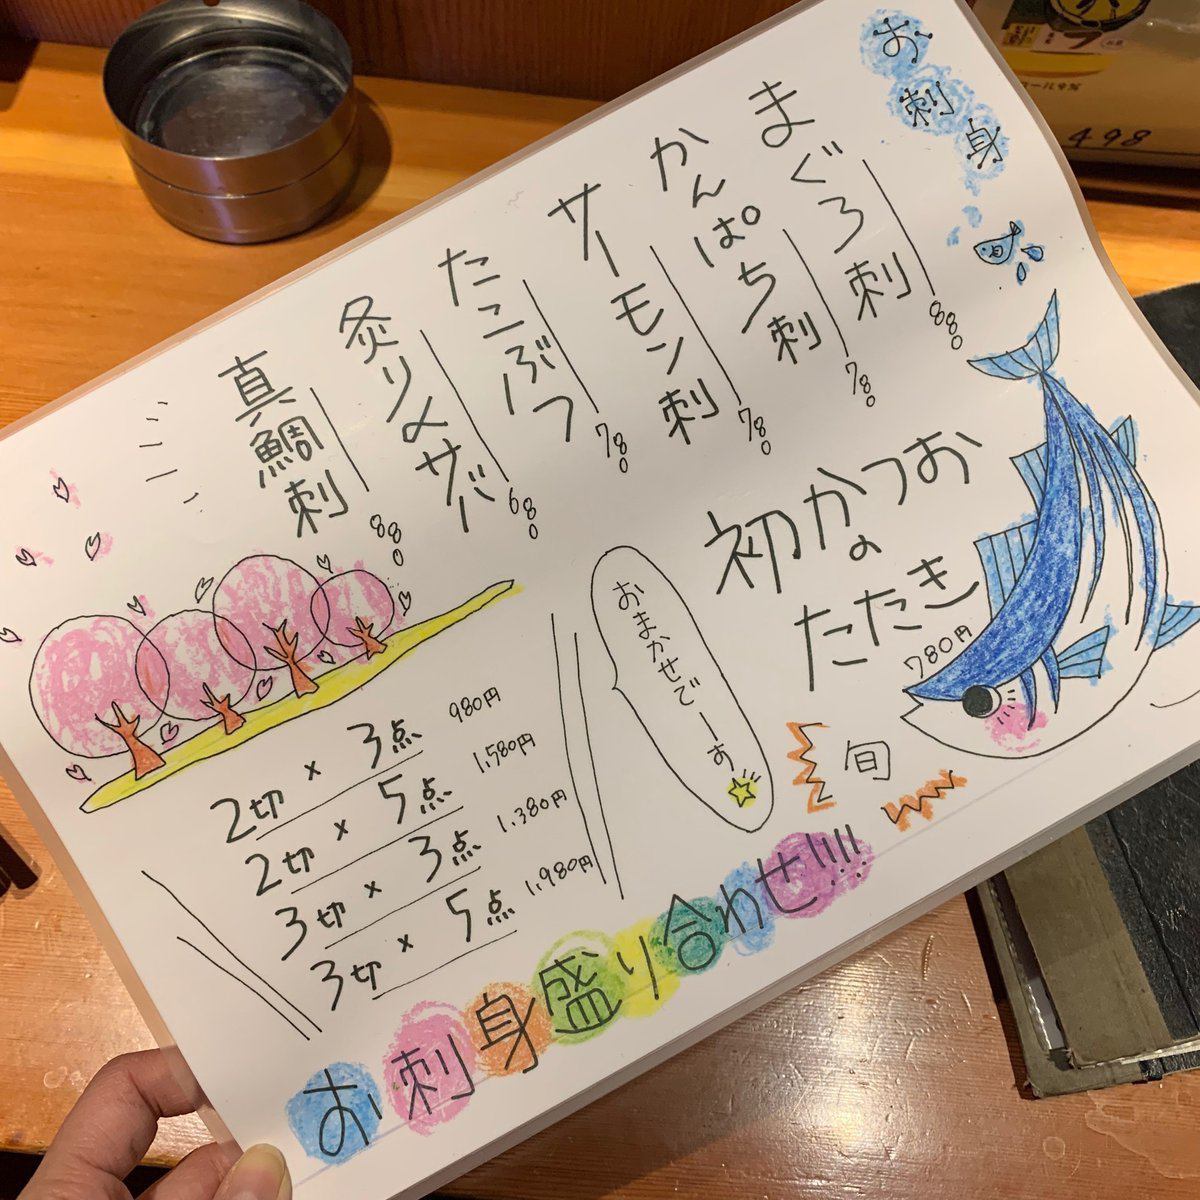 お刺身
旬
まぐろ刺 880
かんぱち刺 780
サーモン刺 780
たこぶつ 780
炙り〆サバ 680
真鯛刺 880
初かつおの
たたき
780円
旬
おまかせでーす
2切×3点 980円
2切×5点 1,580円
3切×3点 1,380円
3切×5点 1,980円
お刺身盛り合わせ!!!!
498